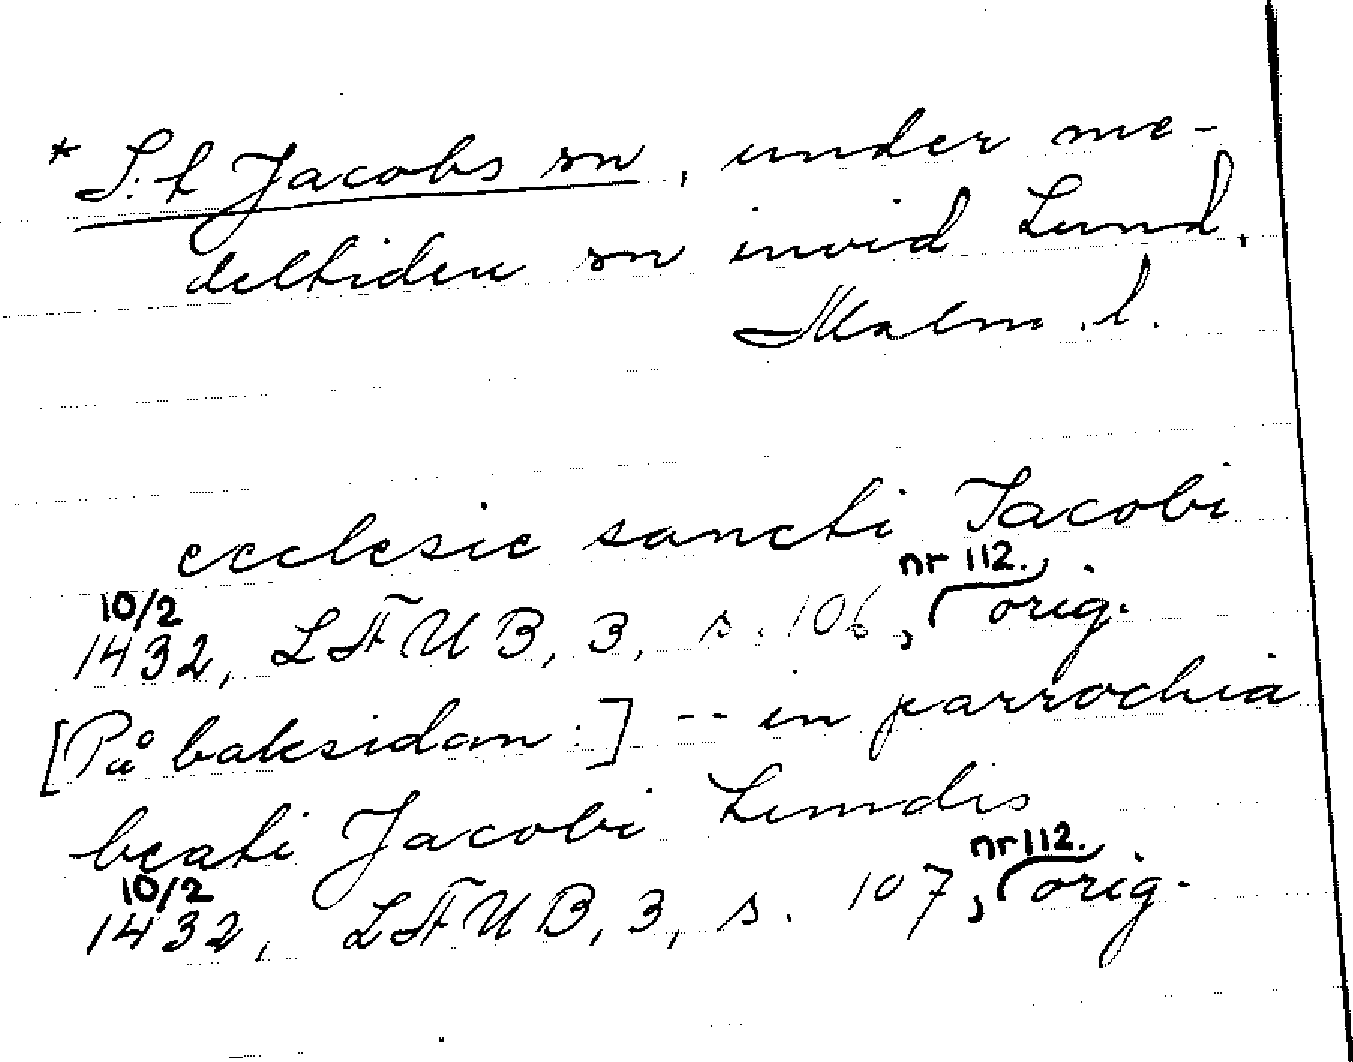 * S:t Jacobs sn, under me-
deltiden sn invid Lund.
Malm. l.
ecclesie sancti Jacobi
nr 112.
10/2
1432, LÄUB, 3, s. 106, orig.
[På baksidan:] -- in parrochia
beati Jacobi Lundis
nr 112.
10/2
1432, LÄUB, 3, s. 107, orig.